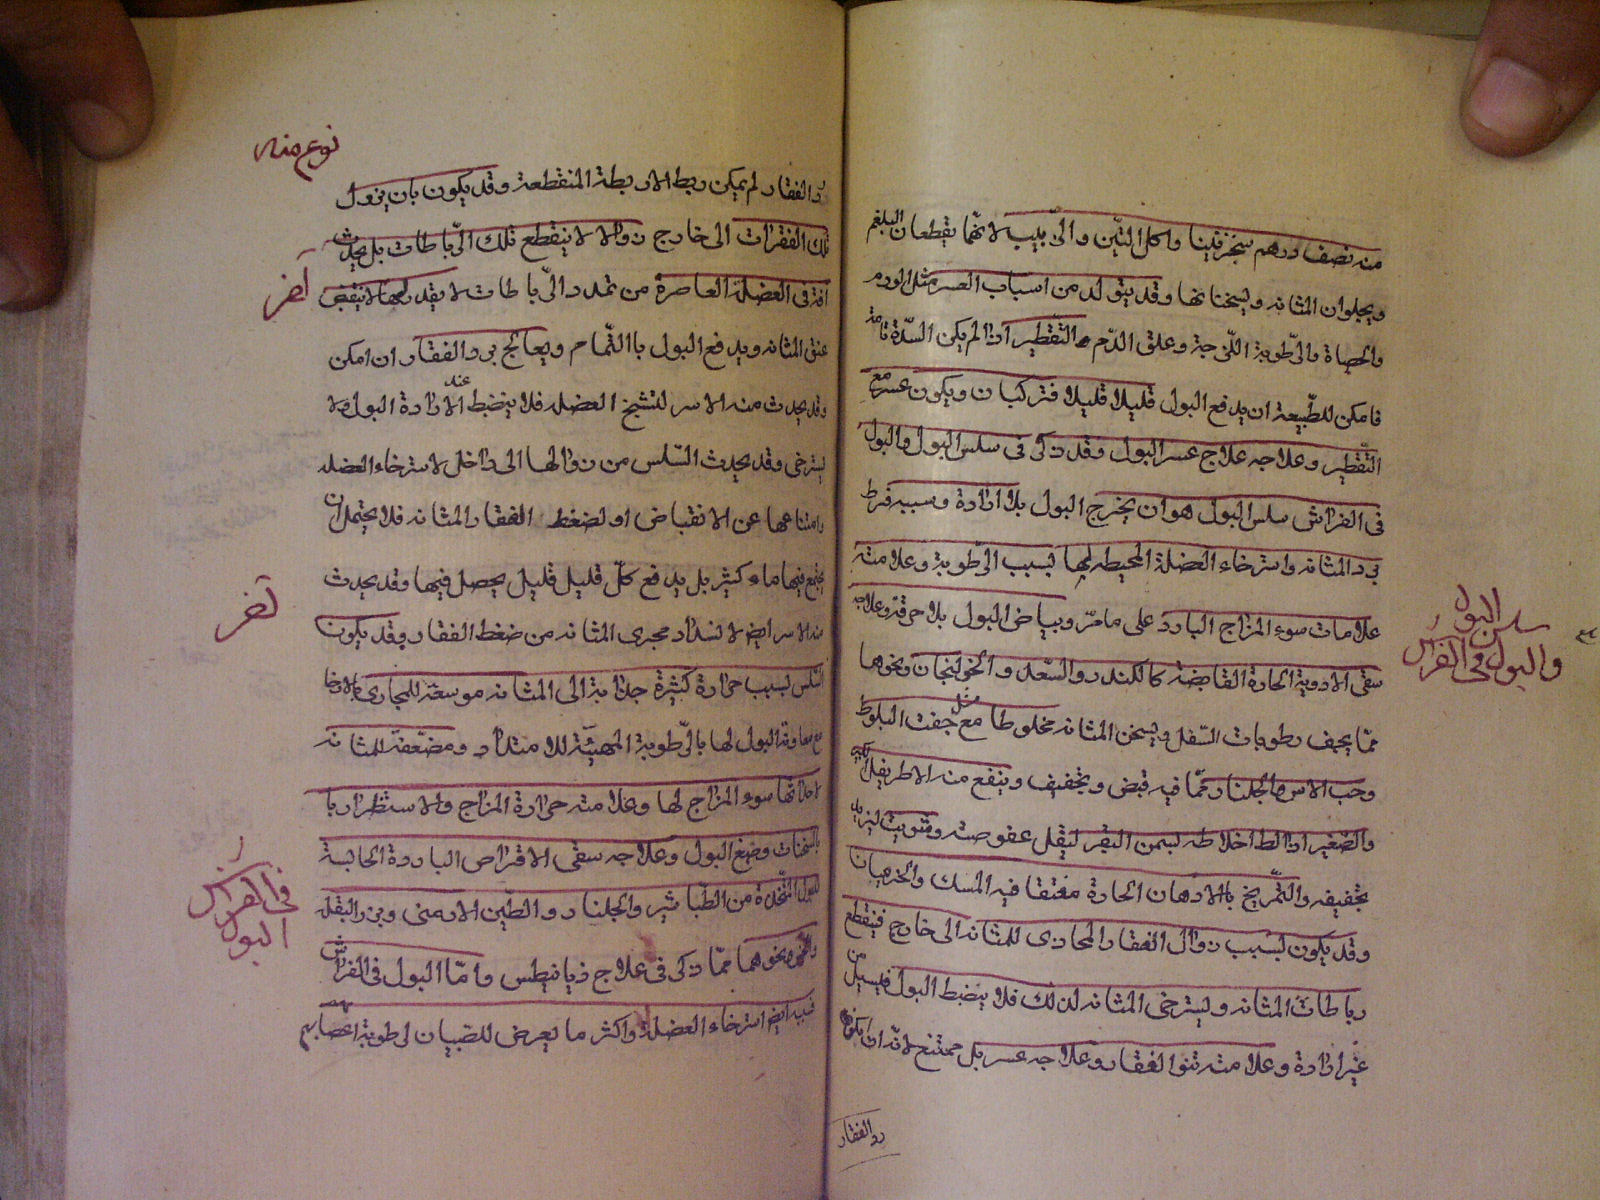 منه نصف درهم سنجزنينا واكل التين والزبيب لانهما يقطعان البلغم
ويجلوان المثانه ويسخنانها وقد يتولد من اسباب العسر مثل الورم
والحصاة والرّطوبة اللّزجة وعلق الدّم التّقطير اذا لم يكن السدّة تامة
فامكن للطّبيعة ان يدفع البول قليلا قليلا فتركبان ويكون عسر مع
التّقطير وعلاجه علاج عسر البول وقد ذكر فى سلس البول والبول
فى الفراش سلس البول هو ان يخرج البول بلا ارادة وسببه فرط
برد المثانه واسترخاء العضلة المحيطه بها بسبب الرّطوبة وعلامته
علامات سوء المزاج البارد على ما مرّ وبياض البول بلا حرقة وعلاجه
سقى الادوية الحارة القابضة كالكندر والسّعد والخولنجان ونحوها
ممّا يجفف رطوبات السّفل ويسخن المثانه مخلوطا مع مثل جفت البلوط
وحب الاس والجلنار ممّا فيه قبض وتجفيف وينفع منه الاطريفل الكبير
والصّغير اذا لط اخلاطه بسمن البقر ليقل عفوصته وقنويت
تجفيفه والتّمريخ بالادهان الحارة مفتقا فيه المسك والخرميان
وقد يكون بسبب زوال الفقار المحاذى للمثانه الى خارج فينقطع
رباطات المثانه ويسترخى المثانه لذلك فلا ينضبط البول فيسيل من
غير ارادة وعلامته نتوا الفقار وعلاجه عسر بل ممتنع لانّه ان امكن
رد الفقار
سلس البول
والبول فى الفراش
رد الفقار لم يمكن ربط الاربطة المنقطعة وقد يكون بان يزول
تلك الفقرات الى خارج زوالا لا ينقطع تلك الرّباطات بل يحدث
افة فى العضلة العاصرة من تمدد الرّباطات لا يقدر بها لا ينقبض
عنق المثانه ويدفع البول بالتّمام ويعالج برد الفقار ان امكن
وقد يحدث منه الاسر لتشنج العضله فلا ينضبط عند الارادة البول ولا
يسترخى وقد يحدث السّلس من زوالها الى داخل لاسترخاء العضله
وامتناعها عن الانقباض او لضغط الفقار المثانه فلا يحتمل ان
يجتمع فيها ماء كثير بل يدفع كلّ قليل قليل يحصل فيها وقد يحدث
منه الاسر ايضا لانسداد مجرى المثانه من ضغط الفقار وقد يكون
السّلس بسبب حرارة كثيرة جذابة الى المثانه موسعة للمجارى بالارخا
مع معاوقة البول لها بالرّطوبة المهيّئة للامتداد ومضعّفة للمثانه
لاحداثها سوء المزاج لها وعلامته حرارة المزاج والاستضرار با
بالسخنات وصبغ البول وعلاجه سقى الاقراص الباردة الحابسة
للبول المتّخذة من الطّباشير والجلنار والطّين الارمنى وبزر البقلة
ونحوهما ممّا ذكر فى علاج ذيابيطس وامّا البول فى الفراش
فسببه ايضا استرخاء العضلة واكثر ما يعرض للصّبيان لرطوبة اعصابهم
نوع منه
آخر
آخر
البول
فى الفراش